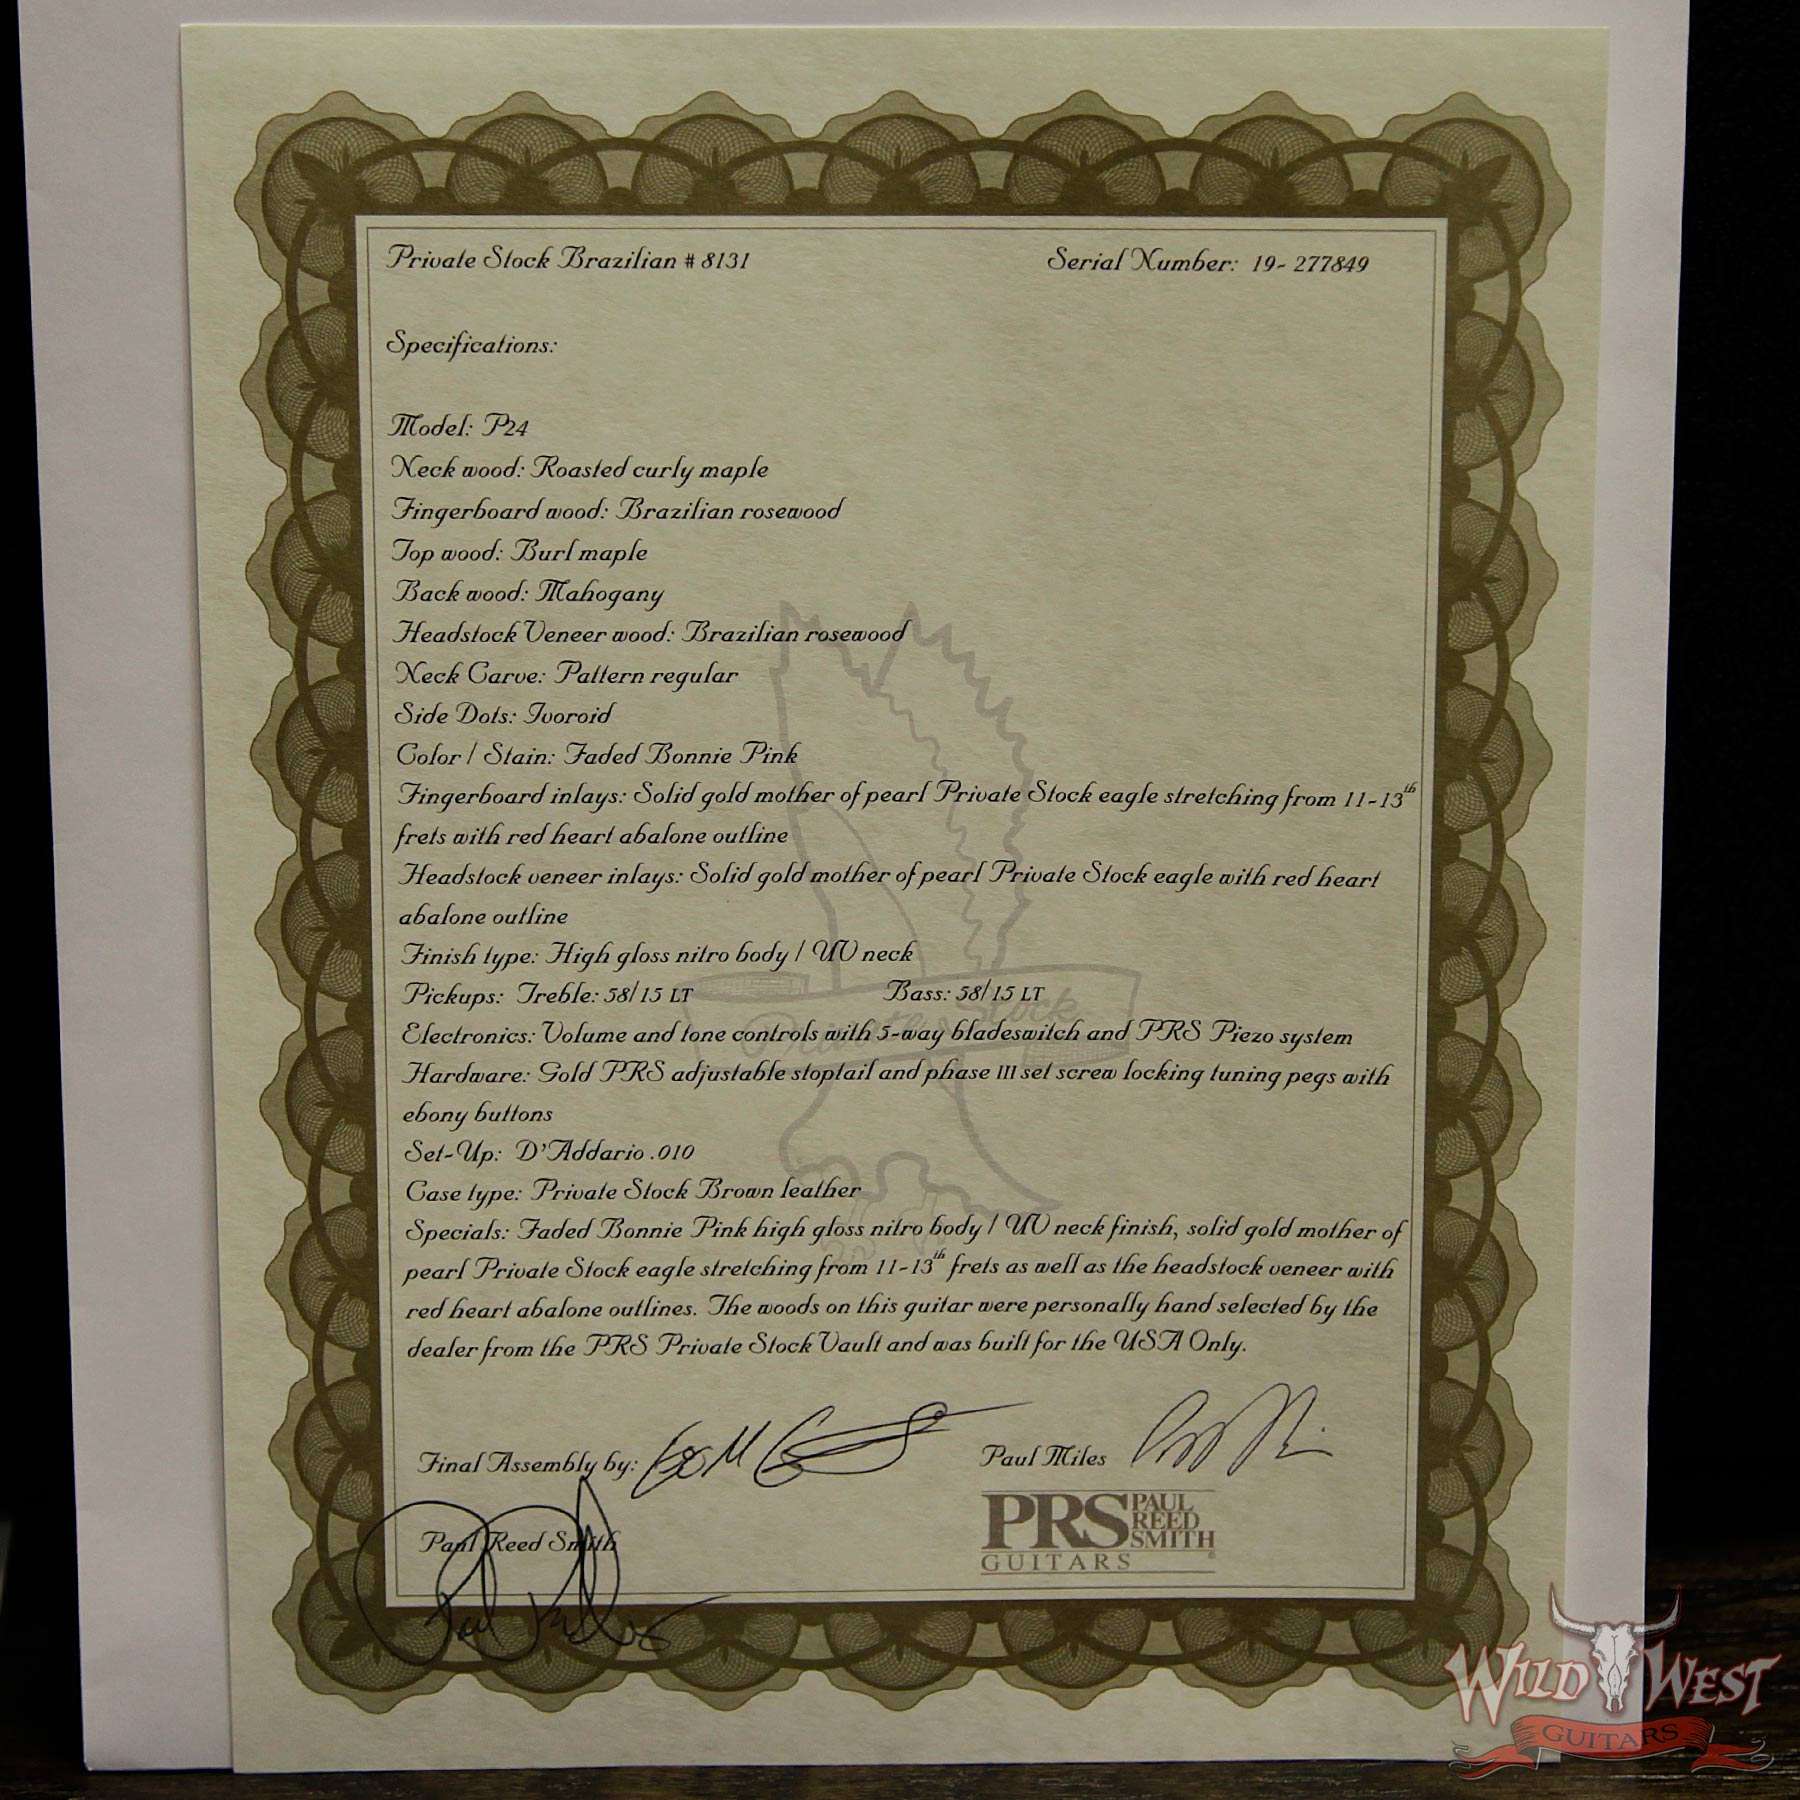 Private Stock Brazilian # 8131 Serial Number: 19- 277849
Specifications:
Model: P24
Neck wood: Roasted curly maple
Fingerboard wood: Brazilian rosewood
Top wood: Burl maple
Back wood: Mahogany
Headstock Veneer wood: Brazilian rosewood
Neck Carve: Pattern regular
Side Dots: Ivoroid
Color / Stain: Faded Bonnie Pink
Fingerboard inlays: Solid gold mother of pearl Private Stock eagle stretching from 11-13th
frets with red heart abalone outline
Headstock veneer inlays: Solid gold mother of pearl Private Stock eagle with red heart
abalone outline
Finish type: High gloss nitro body / UV neck
Pickups: Treble: 58/15 LT Bass: 58/15 LT
Electronics: Volume and tone controls with 5-way bladeswitch and PRS Piezo system
Hardware: Gold PRS adjustable stoptail and phase III set screw locking tuning pegs with
ebony buttons
Set-Up: D'Addario .010
Case type: Private Stock Brown leather
Specials: Faded Bonnie Pink high gloss nitro body / UV neck finish, solid gold mother of
pearl Private Stock eagle stretching from 11-13th frets as well as the headstock veneer with
red heart abalone outlines. The woods on this guitar were personally hand selected by the
dealer from the PRS Private Stock Vault and was built for the USA Only.
Final Assembly by: Paul Miles
Paul Reed Smith
PRS PAUL
REED
SMITH
GUITARS
WILD WEST
GUITARS